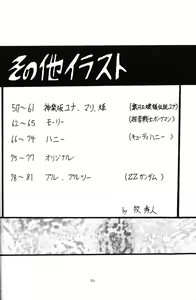 その他イラスト
50〜61 神楽坂ユナ、マリ、嬢 (銀河お嬢様伝説ユナ)
62〜65 モーリー (超音戦士ボーグマン)
66〜74 ハニー (キューティハニー)
75〜77 オリジナル
78〜81 プル、プルツー (ZZガンダム)
by 秀人